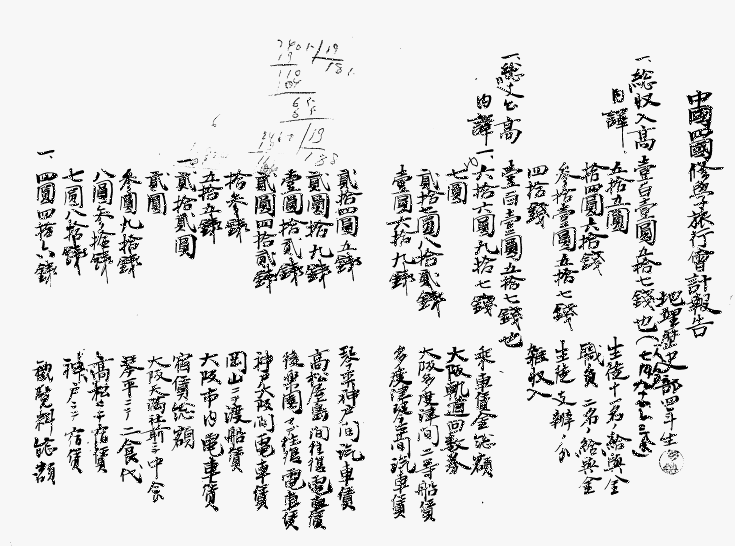 中國四國修學旅行會計報告
地理歴史部四年生
一、総収入高 壹百壹圓五拾七錢也
内譯
五拾五圓 生徒十一名ノ給與金
拾四圓六拾錢 職員二名ノ給與金
参拾壹圓五拾七錢 生徒支辨ノ分
四拾錢 雜収入
一、総支出高 壹百壹圓五拾七錢也
内譯
一、六拾六圓九拾七錢 乘車賃金総額
七圓 大阪軌道回数券
貳拾圓八拾貳錢 大阪多度津間二等船賃
壹圓六拾九錢 多度津琴平間汽車賃
貳拾四圓五錢 琴平神戸間汽車賃
貳圓貳拾九錢 高松屋島間往復電車賃
壹圓貳拾貳錢 後樂園マデ往復電車賃
貳圓四拾貳錢 神戸大阪間電車賃
拾参錢 岡山ニテ渡船賃
五拾五錢 大阪市内電車賃
一、貳拾貳圓 宿賃総額
貳圓 大阪天満社前ニテ中食
参圓九拾錢 琴平ニテ二食代
八圓参拾錢 高松ニテ宿賃
七圓八拾錢 神戸ニテ宿賃
一、四圓四拾六錢 観覧料総額